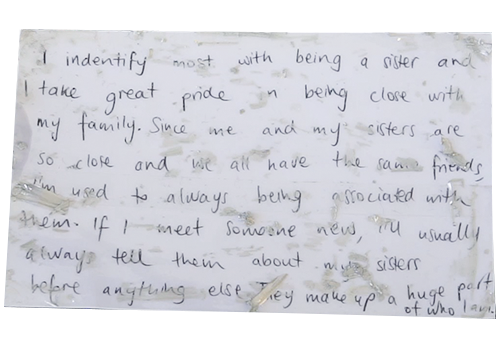 I indentify most with being a sister and
I take great pride in being close with
my family. Since me and my sisters are
so close and we all have the same friends,
I'm used to always being associated with
them. If I meet someone new, I'll usually
always tell them about my sisters
before anything else They make up a huge part
of who I am.